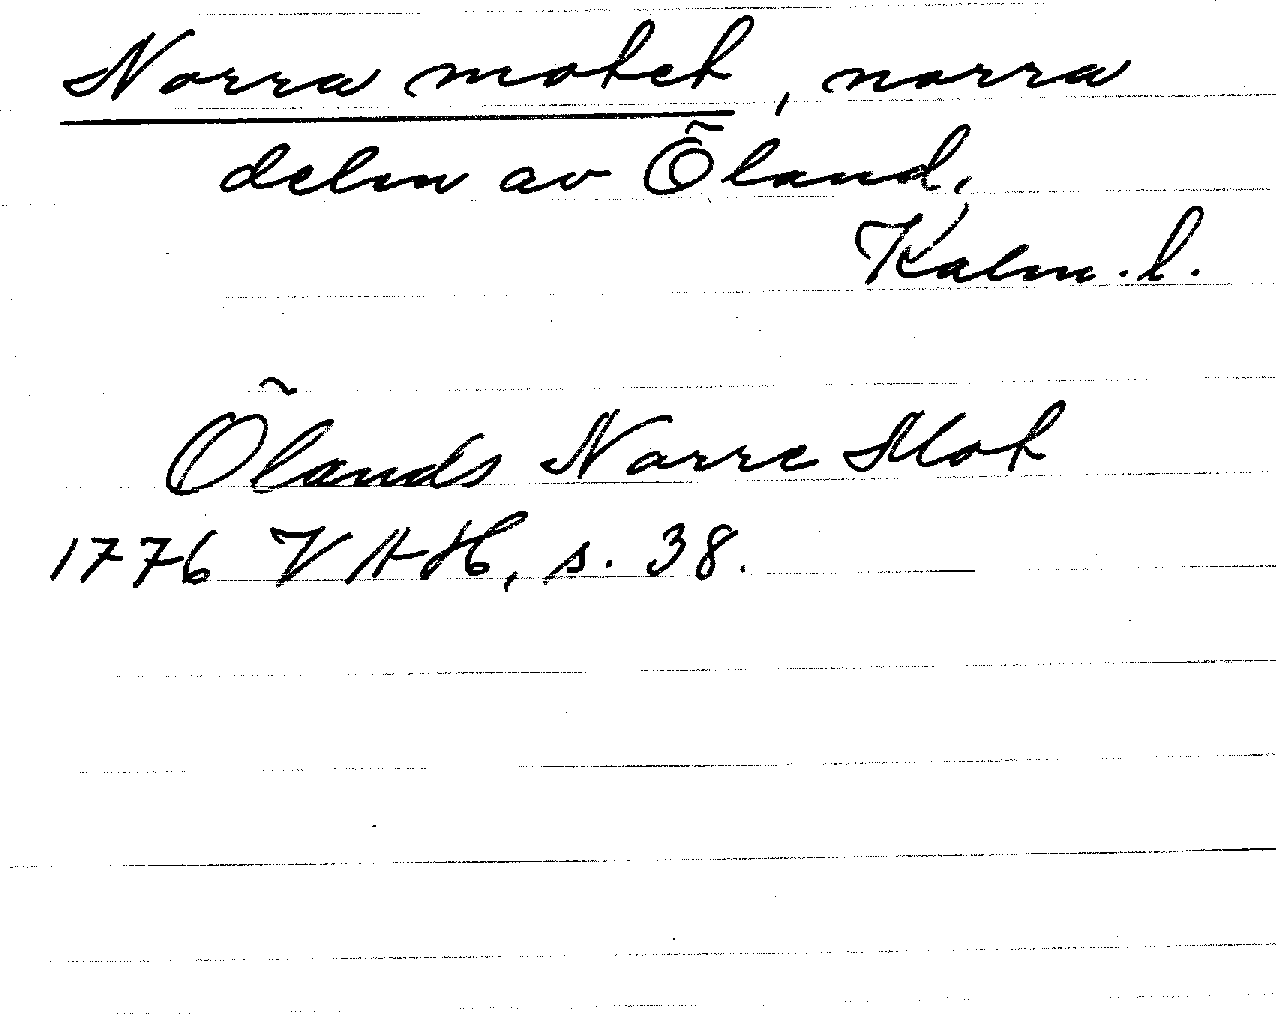 Norra motet, norra
delen av Öland,
Kalm. l.
Ölands Norre Mot
1776 VAH, s. 38.